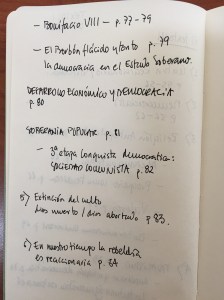 - Bonifacio VIII - p. 77-79
- El Borbón flácido y tonto p. 79
la democracia en el Estado Soberano.
DESARROLLO ECONÓMICO Y DEMOCRACIA
p. 80
SOBERANÍA POPULAR p. 81
- 3ª etapa conquista democrática:
SOCIEDAD COMUNISTA p. 82
5) Extinción del culto
Dios muerto / dios abortado p. 83.
6) En nuestro tiempo la rebeldía
es reaccionaria p. 84